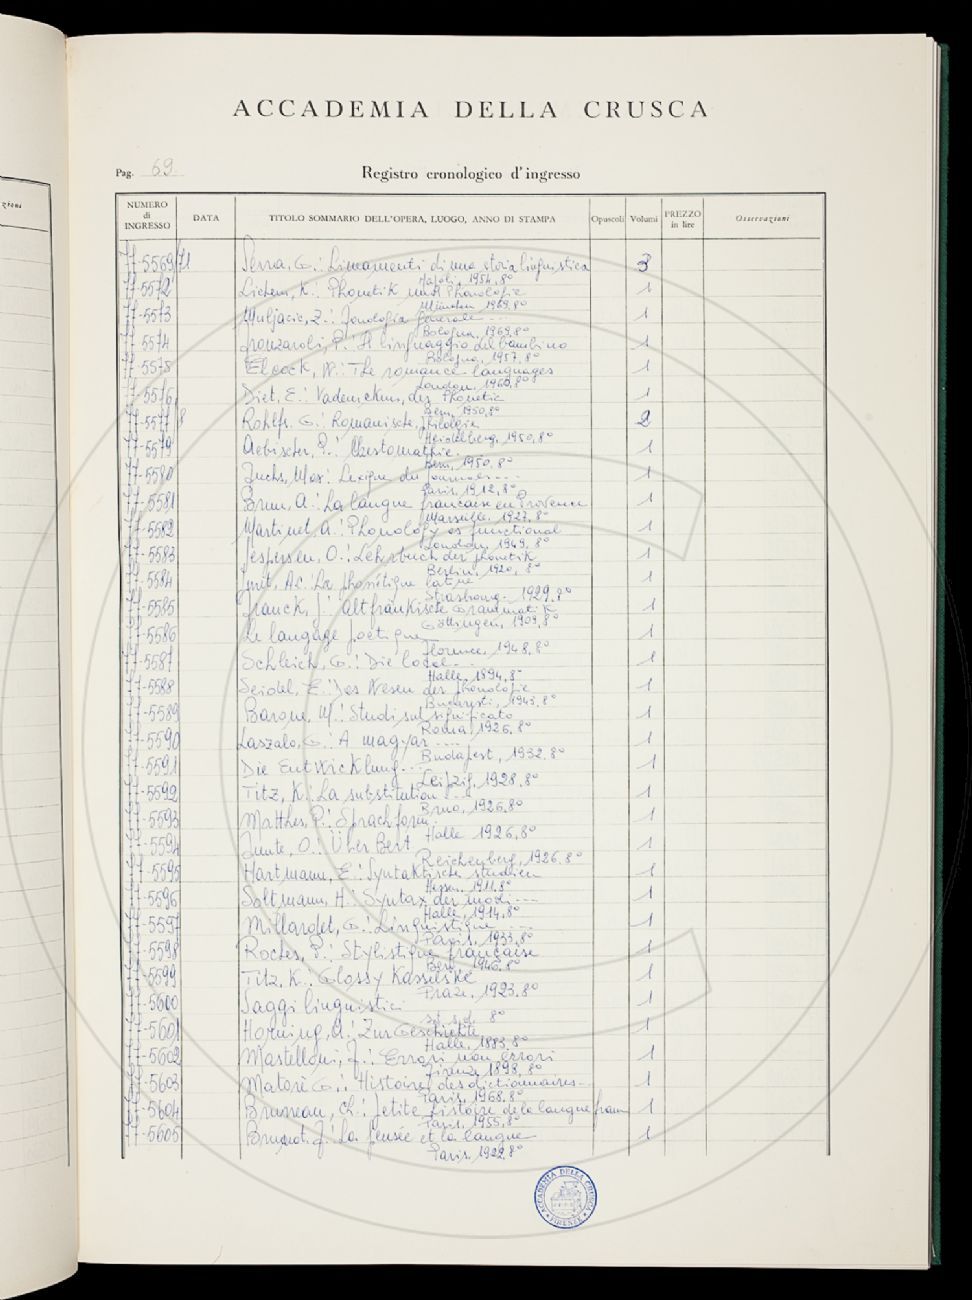 ACCADEMIA DELLA CRUSCA
Pag. 69
Registro cronologico d'ingresso
NUMERO di INGRESSO DATA TITOLO SOMMARIO DELL'OPERA, LUOGO, ANNO DI STAMPA Opuscoli Volumi PREZZO in lire Osservazioni
77-5569/71 Serra, G.: Lineamenti di una storia linguistica 3
Napoli, 1954, 8°
77-5572 Lichem, K.: Phonetik und Phonologie 1
München 1969, 8°
77-5573 Muljacic, Z.: Fonologia generale --- 1
Bologna, 1969, 8°
77-5574 Fronzaroli, P.: Il linguaggio del bambino 1
Bologna, 1957, 8°
77-5575 Elcock, W.: The romance languages 1
London, 1960, 8°
77-5576 Diet, E.: Vademekum der Phonetik 1
Bern, 1950, 8°
77-5577/8 Rohlfs, G.: Romanische philologie 2
Heidelberg, 1950, 8°
77-5579 Aebischer, P.: Chrestomathie 1
Bern, 1950, 8°
77-5580 Fuchs, Max: Lexique du Journal --- 1
Paris, 1912, 8°
77-5581 Brun, A.: La langue française en Provence 1
Marseille, 1927, 8°
77-5582 Martinet, A.: Phonology as functional 1
London, 1949, 8°
77-5583 Jespersen, O.: Lehrbuch der phonetik 1
Berlin, 1920, 8°
77-5584 Juret, Ac.: La phonétique latine 1
Strasbourg, 1929, 8°
77-5585 Franck, J.: Altfränkische Grammatik 1
Göttingen, 1909, 8°
77-5586 Le langage poetique 1
Florence, 1948, 8°
77-5587 Schleich, G.: Die 1
Halle, 1894, 8°
77-5588 Seidel, E.: Das Wesen der phonologie 1
Bucuresti, 1943, 8°
77-5589 Barone, M.: Studi sul significato 1
Roma, 1926, 8°
77-5590 Laszalo, G.: A magyar .... 1
Budapest, 1932, 8°
77-5591 Die Entwicklung... 1
Leipzig, 1928, 8°
77-5592 Titz, K.: La substitution --- 1
Brno, 1926, 8°
77-5593 Matthes, P.: Sprachform. 1
Halle 1926, 8°
77-5594 Über Bert 1
Reichenberg, 1926, 8°
77-5595 Hartmann, E.: Syntaktische studien 1
1911, 8°
77-5596 Soltmann, H.: Syntax der modi --- 1
Halle, 1914, 8°
77-5597 Millardet, G.: Linguistique 1
Paris, 1933, 8°
77-5598 Roches, P.: Stylistique française 1
Bern, 1946, 8°
77-5599 Titz, K.: Glossy Kasselské 1
Praze, 1923, 8°
77-5600 Saggi linguistici 1
s.l. s.d. 8°
77-5601 Horning, A.: Zur Geschichte 1
Halle, 1883, 8°
77-5602 Mastelloni, F.: Errori non errori 1
Firenze 1898, 8°
77-5603 Matorè G.: Histoire des dictionnaires --- 1
Paris, 1968, 8°
77-5604 Bruneau, Ch.: Petite histoire de la langue fran 1
Paris, 1955, 8°
77-5605 Brunot, F.: La pensée et la langue 1
Paris, 1922, 8°
ACCADEMIA DELLA CRUSCA
FIRENZE